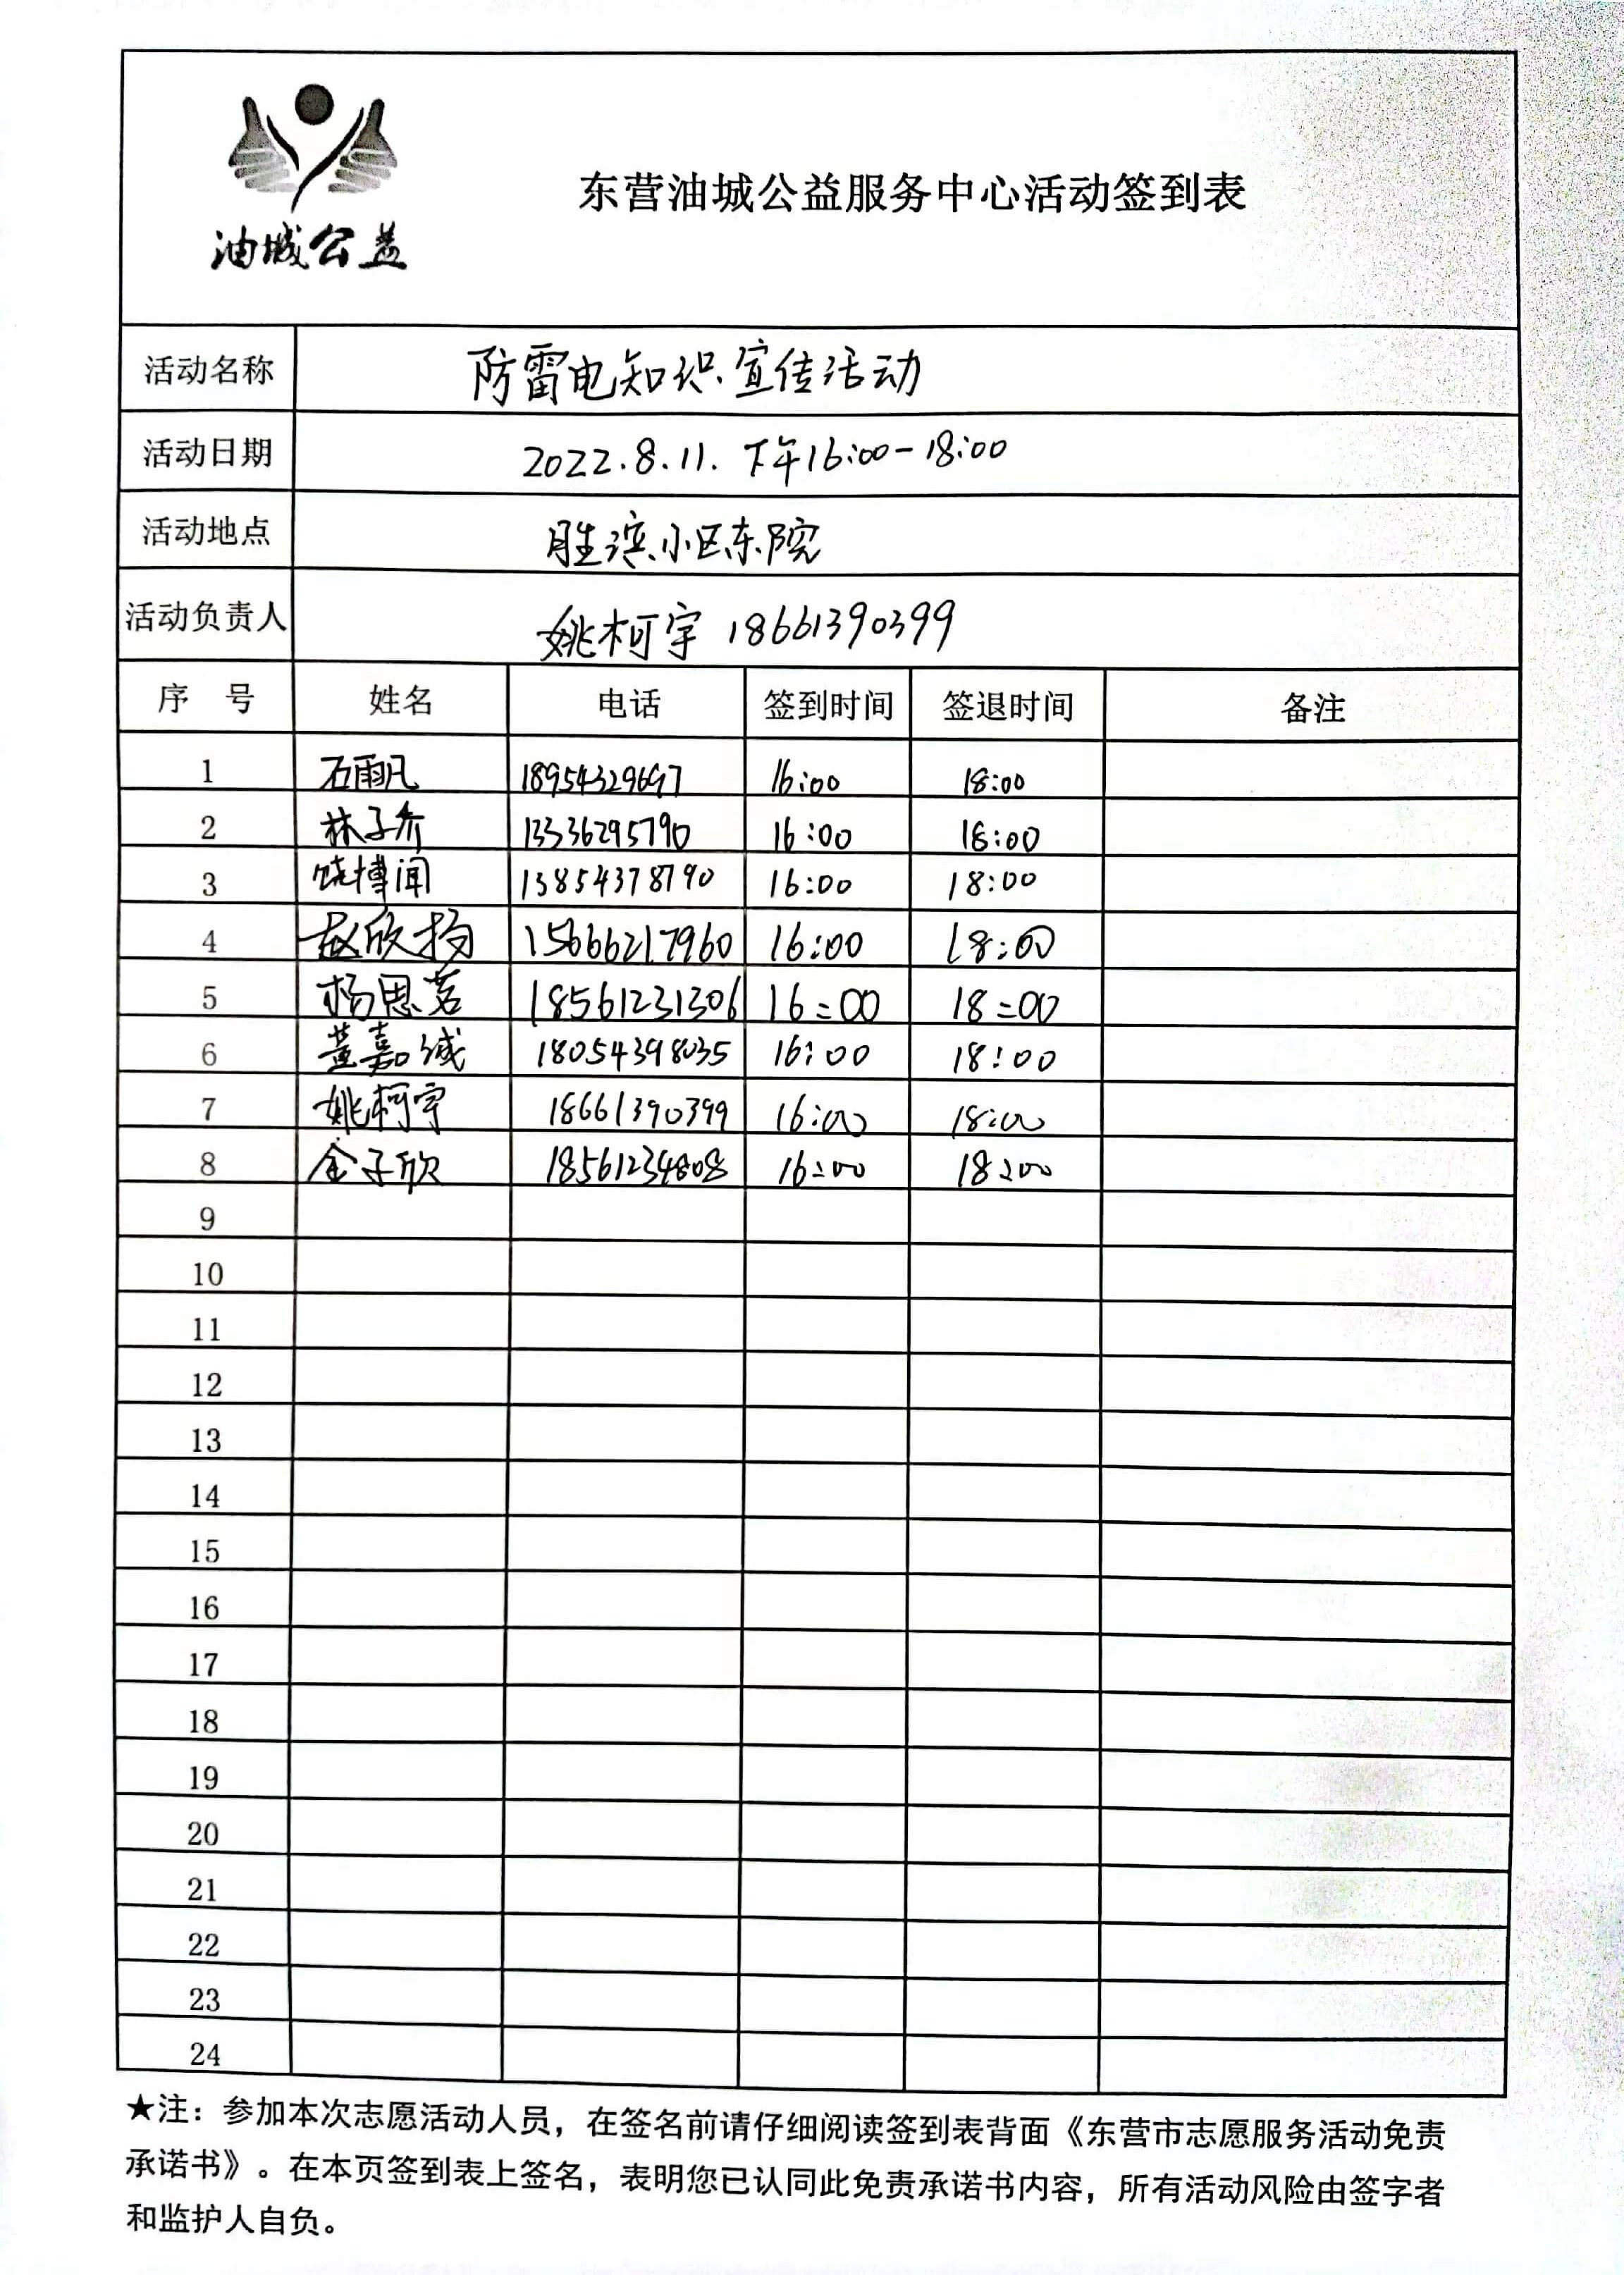 油城公益
东营油城公益服务中心活动签到表
活动名称 防雷电知识宣传活动
活动日期 2022.8.11. 下午16:00-18:00
活动地点 胜滨小区东院
活动负责人 姚柯宇 18661390399
序 号 姓名 电话 签到时间 签退时间 备注
1 石雨凡 18954329697 16:00 18:00
2 林子乔 13336295790 16:00 18:00
3 饶博闻 13854378790 16:00 18:00
4 赵欣扬 15666217960 16:00 18:00
5 杨思茗 18561231306 16:00 18:00
6 董嘉诚 18054398035 16:00 18:00
7 姚柯宇 18661390399 16:00 18:00
8 金子欣 18561234808 16:00 18:00
9
10
11
12
13
14
15
16
17
18
19
20
21
22
23
24
★注：参加本次志愿活动人员，在签名前请仔细阅读签到表背面《东营市志愿服务活动免责
承诺书》。在本页签到表上签名，表明您已认同此免责承诺书内容，所有活动风险由签字者
和监护人自负。